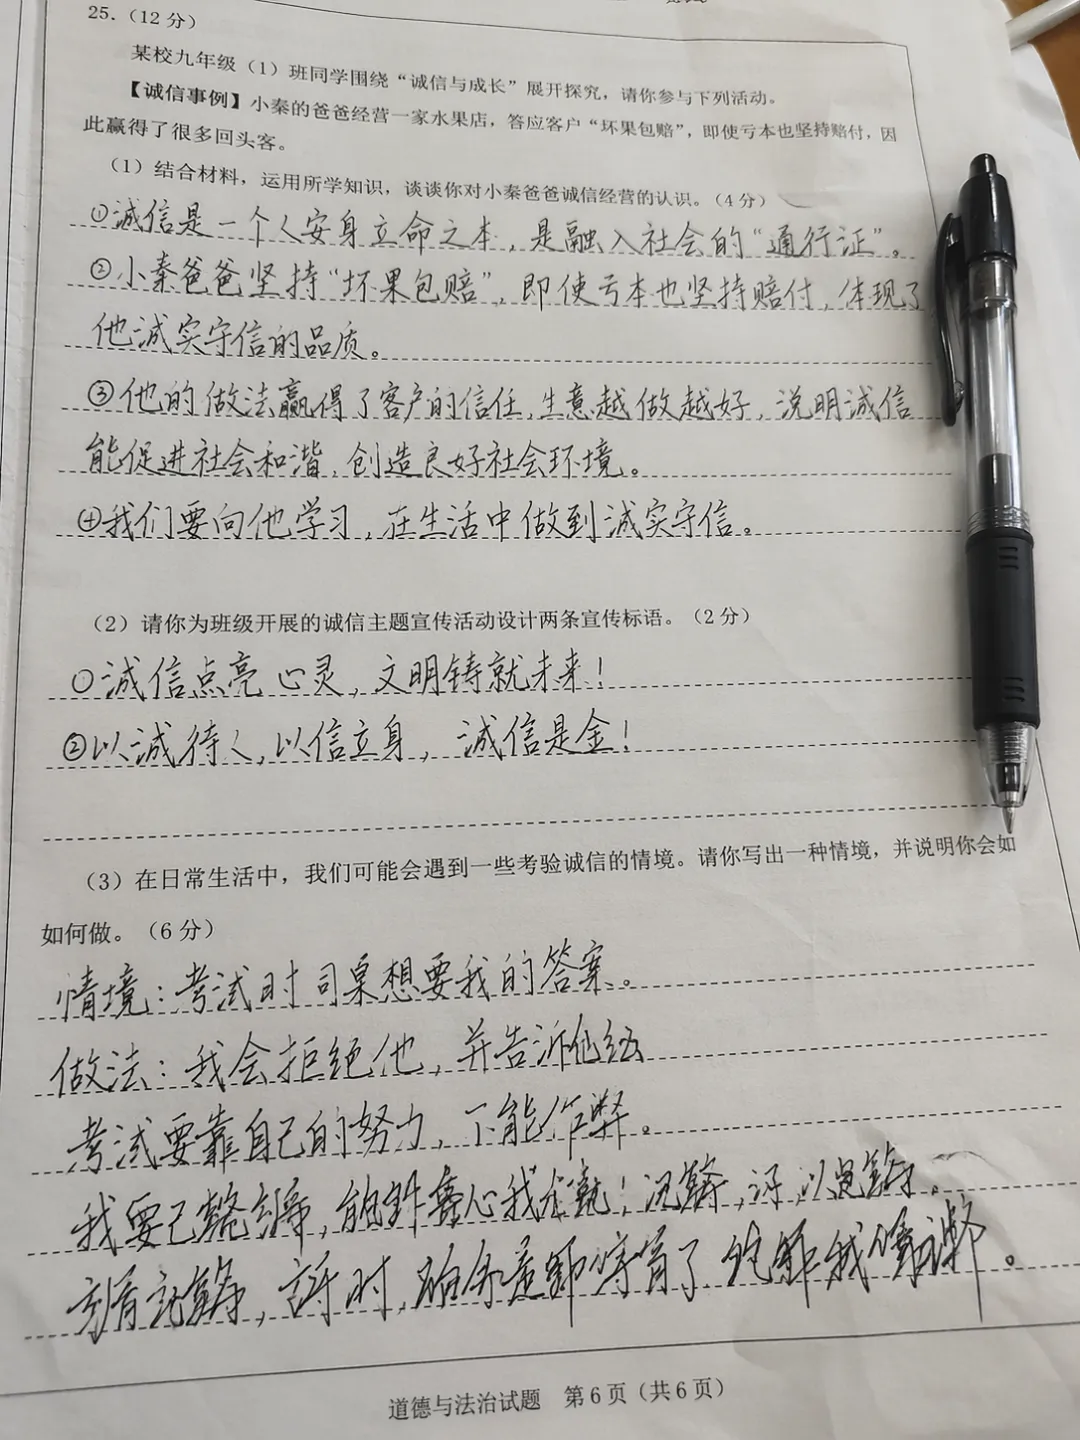 25.（12分）
某校九年级（1）班同学围绕“诚信与成长”展开探究，请你参与下列活动。
【诚信事例】小秦的爸爸经营一家水果店，答应客户“坏果包赔”，即使亏本也坚持赔付，因
此赢得了很多回头客。
（1）结合材料，运用所学知识，谈谈你对小秦爸爸诚信经营的认识。（4分）
①诚信是一个人安身立命之本，是融入社会的“通行证”。
②小秦爸爸坚持“坏果包赔”，即使亏本也坚持赔付，体现了
他诚实守信的品质。
③他的做法赢得了客户的信任，生意越做越好，说明诚信
能促进社会和谐，创造良好社会环境。
④我们要向他学习，在生活中做到诚实守信。
（2）请你为班级开展的诚信主题宣传活动设计两条宣传标语。（2分）
①诚信点亮心灵，文明铸就未来！
②以诚待人，以信立身，诚信是金！
（3）在日常生活中，我们可能会遇到一些考验诚信的情境。请你写出一种情境，并说明你会如
如何做。（6分）
情境：考试时同桌想要我的答案。
做法：我会拒绝他，并告诉他
考试要靠自己的努力，不能作弊。
我要
时，
道德与法治试题 第6页（共6页）